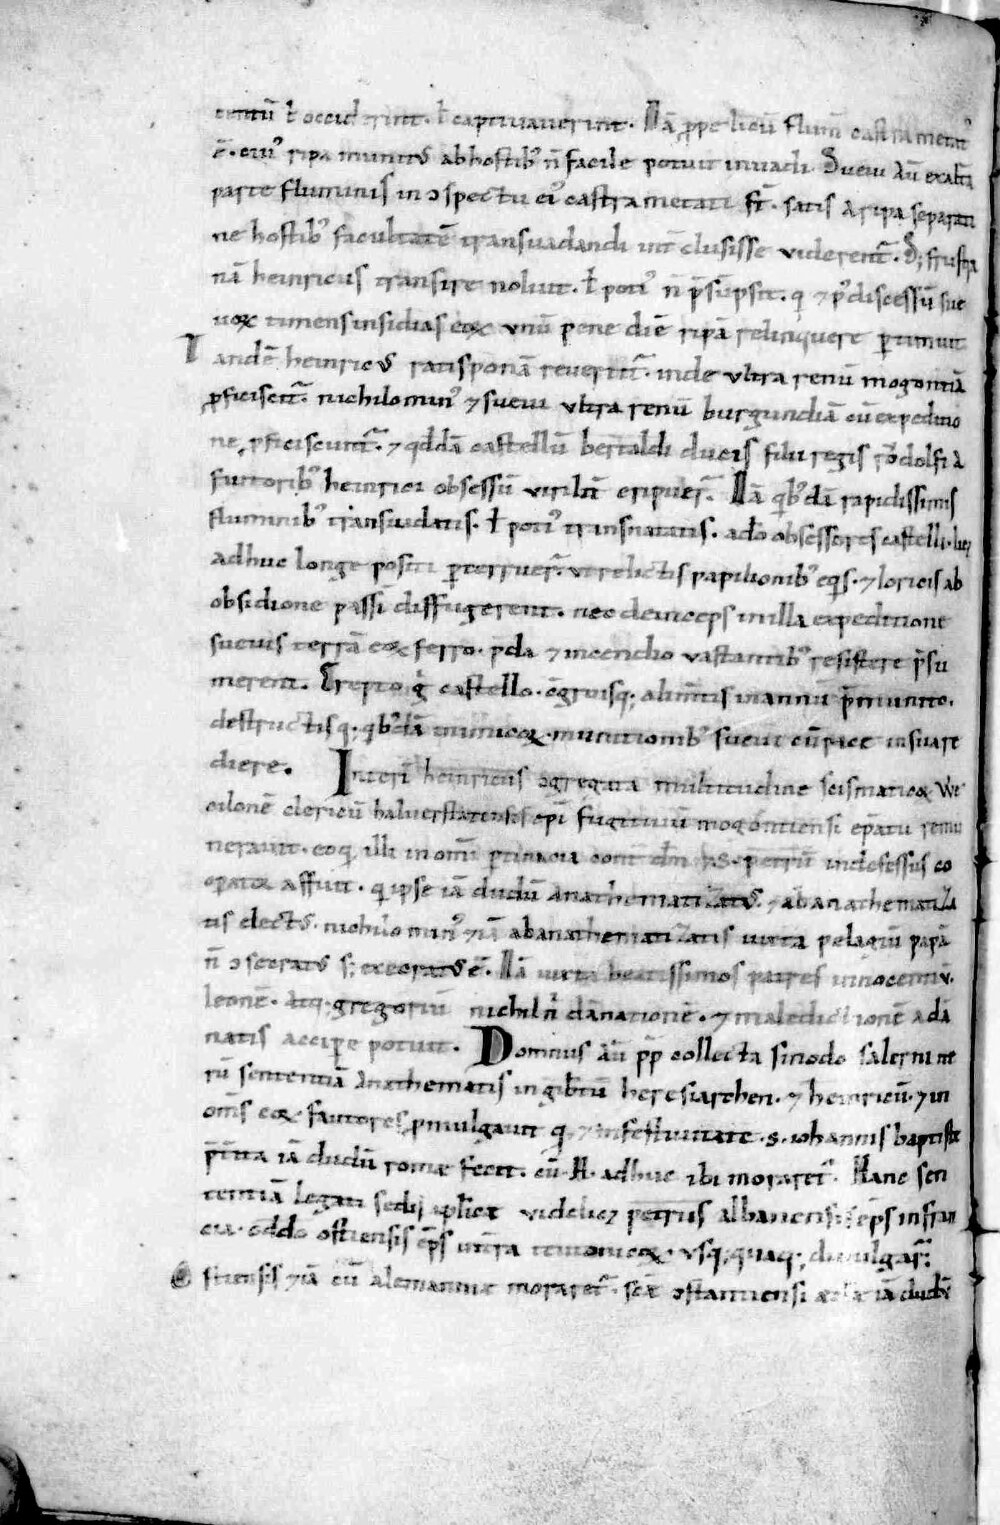 centū ł occiderint. ł captivaverint. Nā ꝓpe licū flum̄ castra metat᷒
ē. cui᷒ ripa munit᷒ ab hostib᷒ n̄ facile potuit invadi. Suevi aū ex alt̄a
parte fluminis in ↄspectu ei᷒ castra metati sr̄t. satis a ripa separati
ne hostib᷒ facultatē transvadandi int̄clusisse viderent̄. S; frustra
nā heinricus transire noluit. ł poti᷒ n̄ p̄sūpsit. qi ⁊ p᷒ discessū sue
voꝝ timens insidias eoꝝ vnū pene diē ripā relinquere ꝑtimuit
Tandē heinric᷒ ratisponā revertit̄. inde vltra renū mogontiā
ꝓficiscit̄. nichilomin᷒ ⁊ suevi vltra renū burgundiā cū expeditio
ne ꝓficiscunt̄. ⁊ qddā castellū bertaldi ducis filii regis rodolfi a
fautorib᷒ heinrici obsessū virilit̄ eripuer̄. Nā qib᷒dā rapidissimis
fluminib᷒ transvadatis. ł poti᷒ transnatatis. adeo obsessores castelli. licꝫ
adhuc longe positi ꝑterruer̄. vt relictis papilionib᷒ eqis. ⁊ loricis ab
obsidione passī diffugerent. nec deinceps in illa expeditione
suevis terrā eoꝝ ferro. p̄da ⁊ incendio vastantib᷒ resistere p̄su
merent. Erepto g̊ castello. ↄgruisq; alim̄tis in annū p̄munito.
destructisq; qib᷒dā inimicoꝝ. munitionib᷒ suevi cū pace in sua re
diere. Interī heinricus ↄgregata multitudine scismaticoꝝ We
cilonē clericū halverstatensis ep̄i fugitivū mogontiensi ep̄atu remu
neravit. eo qi illi in omī ꝑtinacia cont̄ dn̄m ap̄s. petrū indefessus co
oꝑator affuit. qi ipse iā dudū anathematizat᷒. ⁊ ab anathematiza
tis elect᷒. nichilomin᷒ ⁊iā ab anathematizatis iuxta pelagiū papā
n̄ ↄsecrat᷒ s; execrat᷒ ē. Nā iuxta beatissimos patres innocentiū.
leonē. atq; gregoriū nichil n̄ dānationē. ⁊ maledictionē a dā
natis acciꝑe potuit. Domnus aū p̄p̄ collecta sinodo salerni ite
rū sententiā anathematis in gib̄tū heresiarchen. ⁊ heinricū. ⁊ in
om̄s eoꝝ. fautores ꝓmulgavit qi ⁊ in festivitate .s. iohannis baptistę
p̄terita iā dudū romę fecit. cū adhuc ibi moraret̄. Hanc sen
tentiā legati sedis ap̄licę videlicꝫ petrus albanensis ep̄s in fran
cia. oddo ostiensis ep̄s intra teutonicoꝝ. vsq;quaq; divulgar̄.
Ostiensis ⁊iā cū alemannię moraret̄. sc̄ę ↄstantiensi ęcclę iā dudū